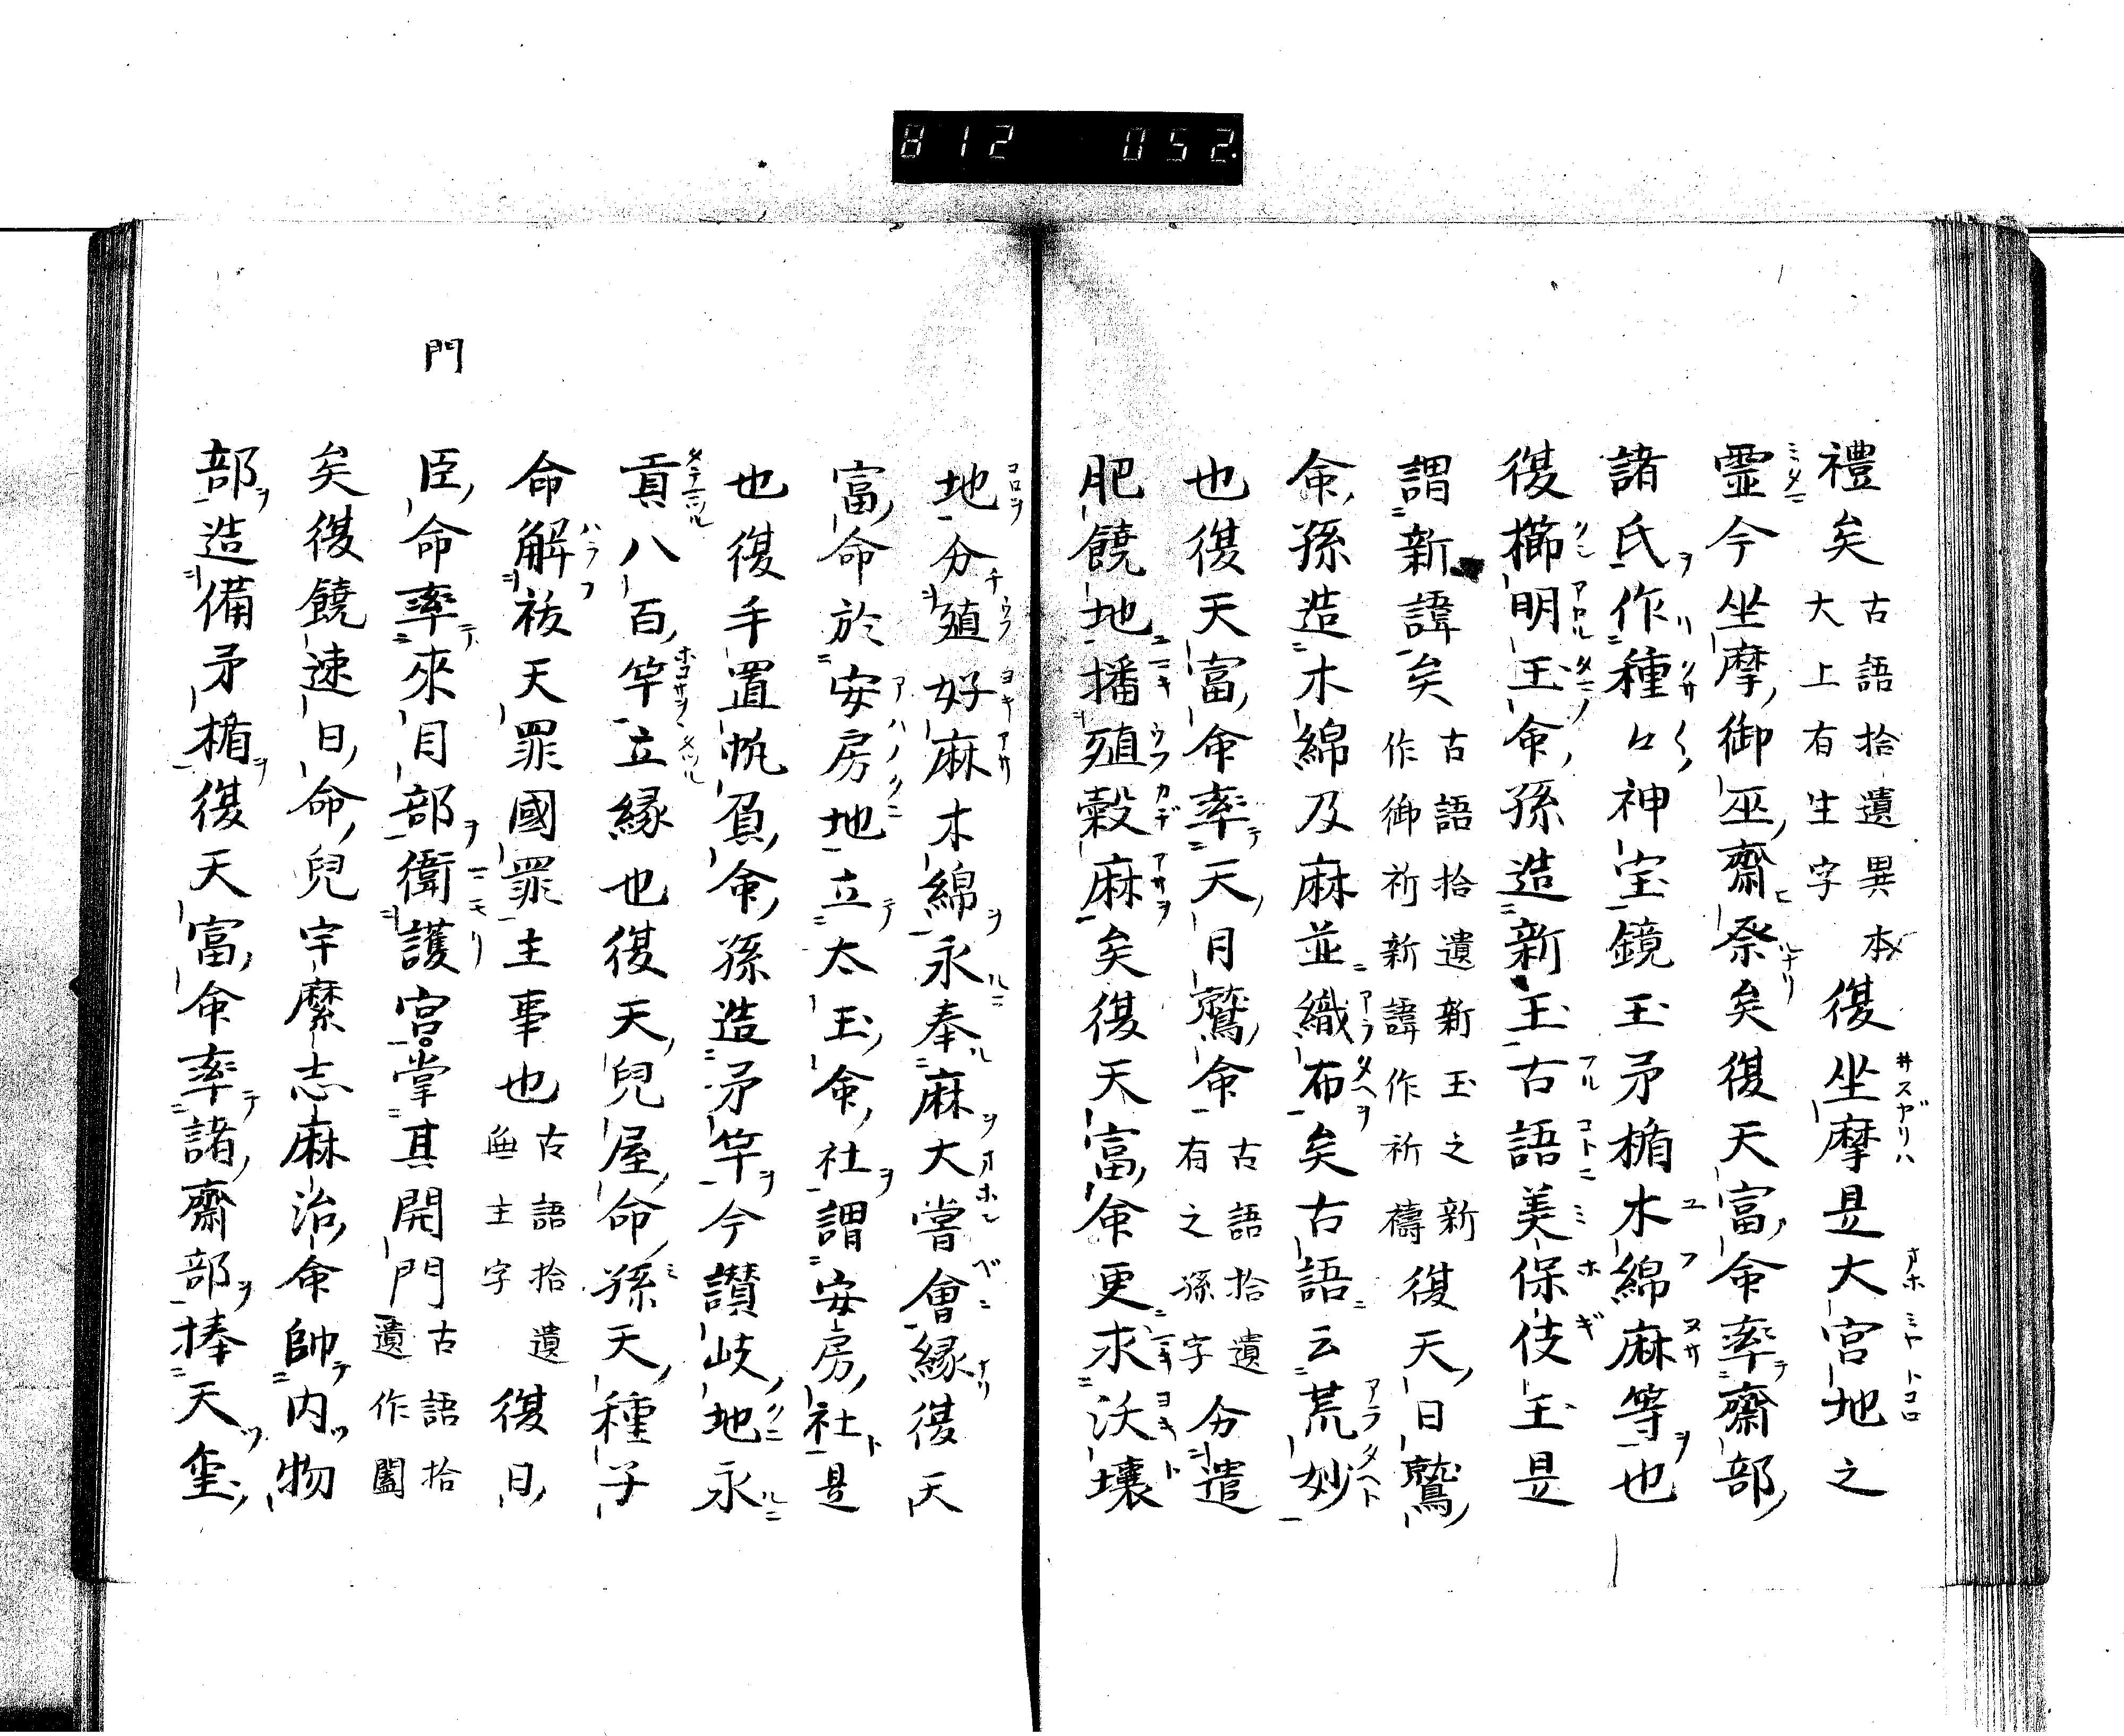 812 052.
禮矣古語拾遺異本大上有生字復坐摩是大宮地之
靈今坐摩御巫齋祭矣復天富命率齋部
諸氏作種々神宝鏡玉矛楯木綿麻等也
復櫛明玉命孫造新玉古語美保伎玉是
謂新諱矣古語拾遺新玉之新作御祈新諱作祈禱復天日鷲
命孫造木綿及麻並織布矣古語云荒妙
也復天富命率天日鷲命古語拾遺有之孫字分遣
肥饒地播殖穀麻矣復天富命更求沃壤
地分殖好麻木綿永奉麻大嘗會縁復天
富命於安房地立太玉命社謂安房社是
也復手置帆負命孫造矛竿今讃岐地永
貢八百竿立縁也復天兒屋命孫天種子
命解祓天罪國罪主事也古語拾遺無主字復日
臣命率來目部衛護宮掌其開門古語拾遺作闔
門
矣復饒速日命兒宇麼志麻治命帥内物
部造備矛楯復天富命率諸齋部捧天璽